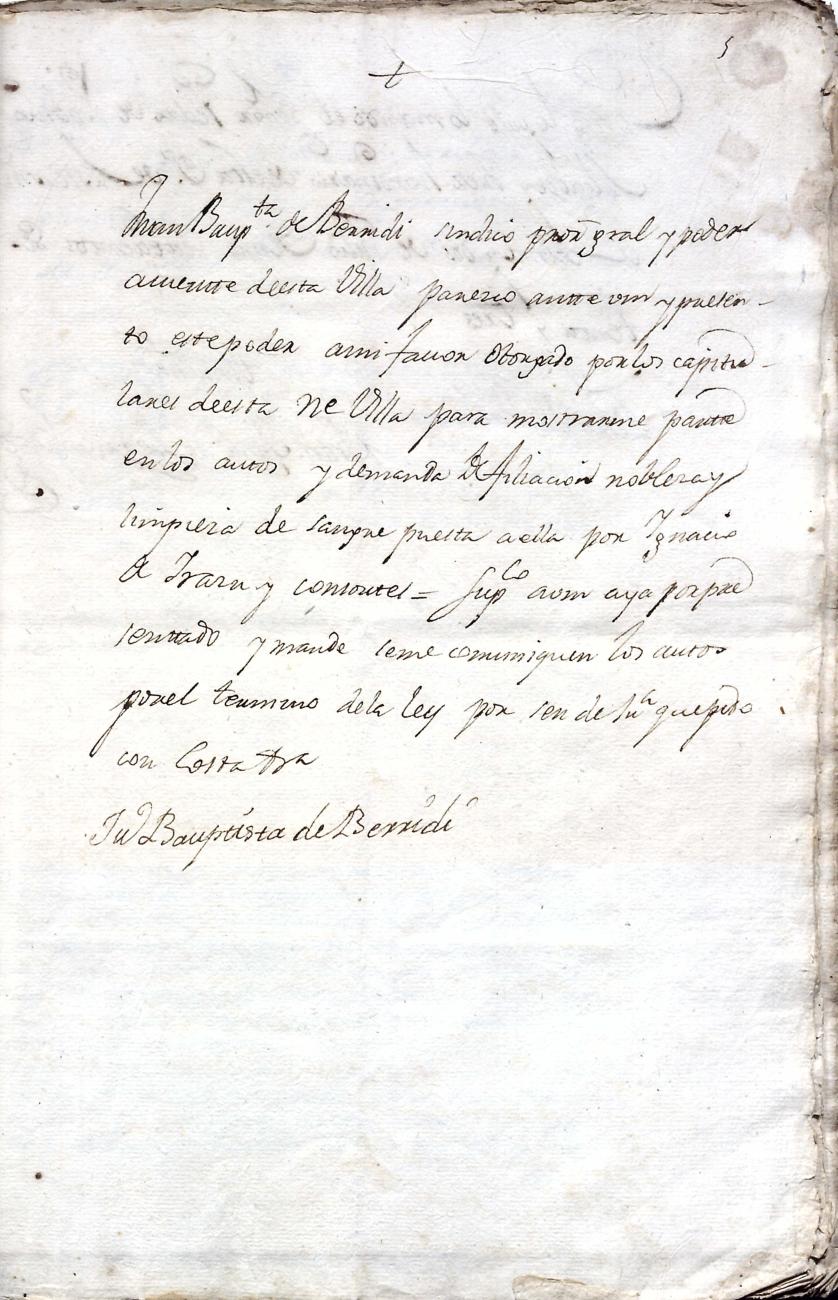 5
Juan Baup.ta de Berridi sindico pror gral y poder
auiente deesta Villa parezco antte vm y presen-
to estepoder ami fauor otorgado por los capitu-
lares deesta Ne Villa para mostrarme partte
en los autos y demanda de filiacion nobleza y
limpieza de sangre puesta aella por Ygnacio
de Yraru y consortes = Sup.co avm aya por pre
senttado y mande seme comuniquen los autos
porel termino dela ley por ser de Jus.a que pido
con Costa &ra
Jun Bauptista de Berridi